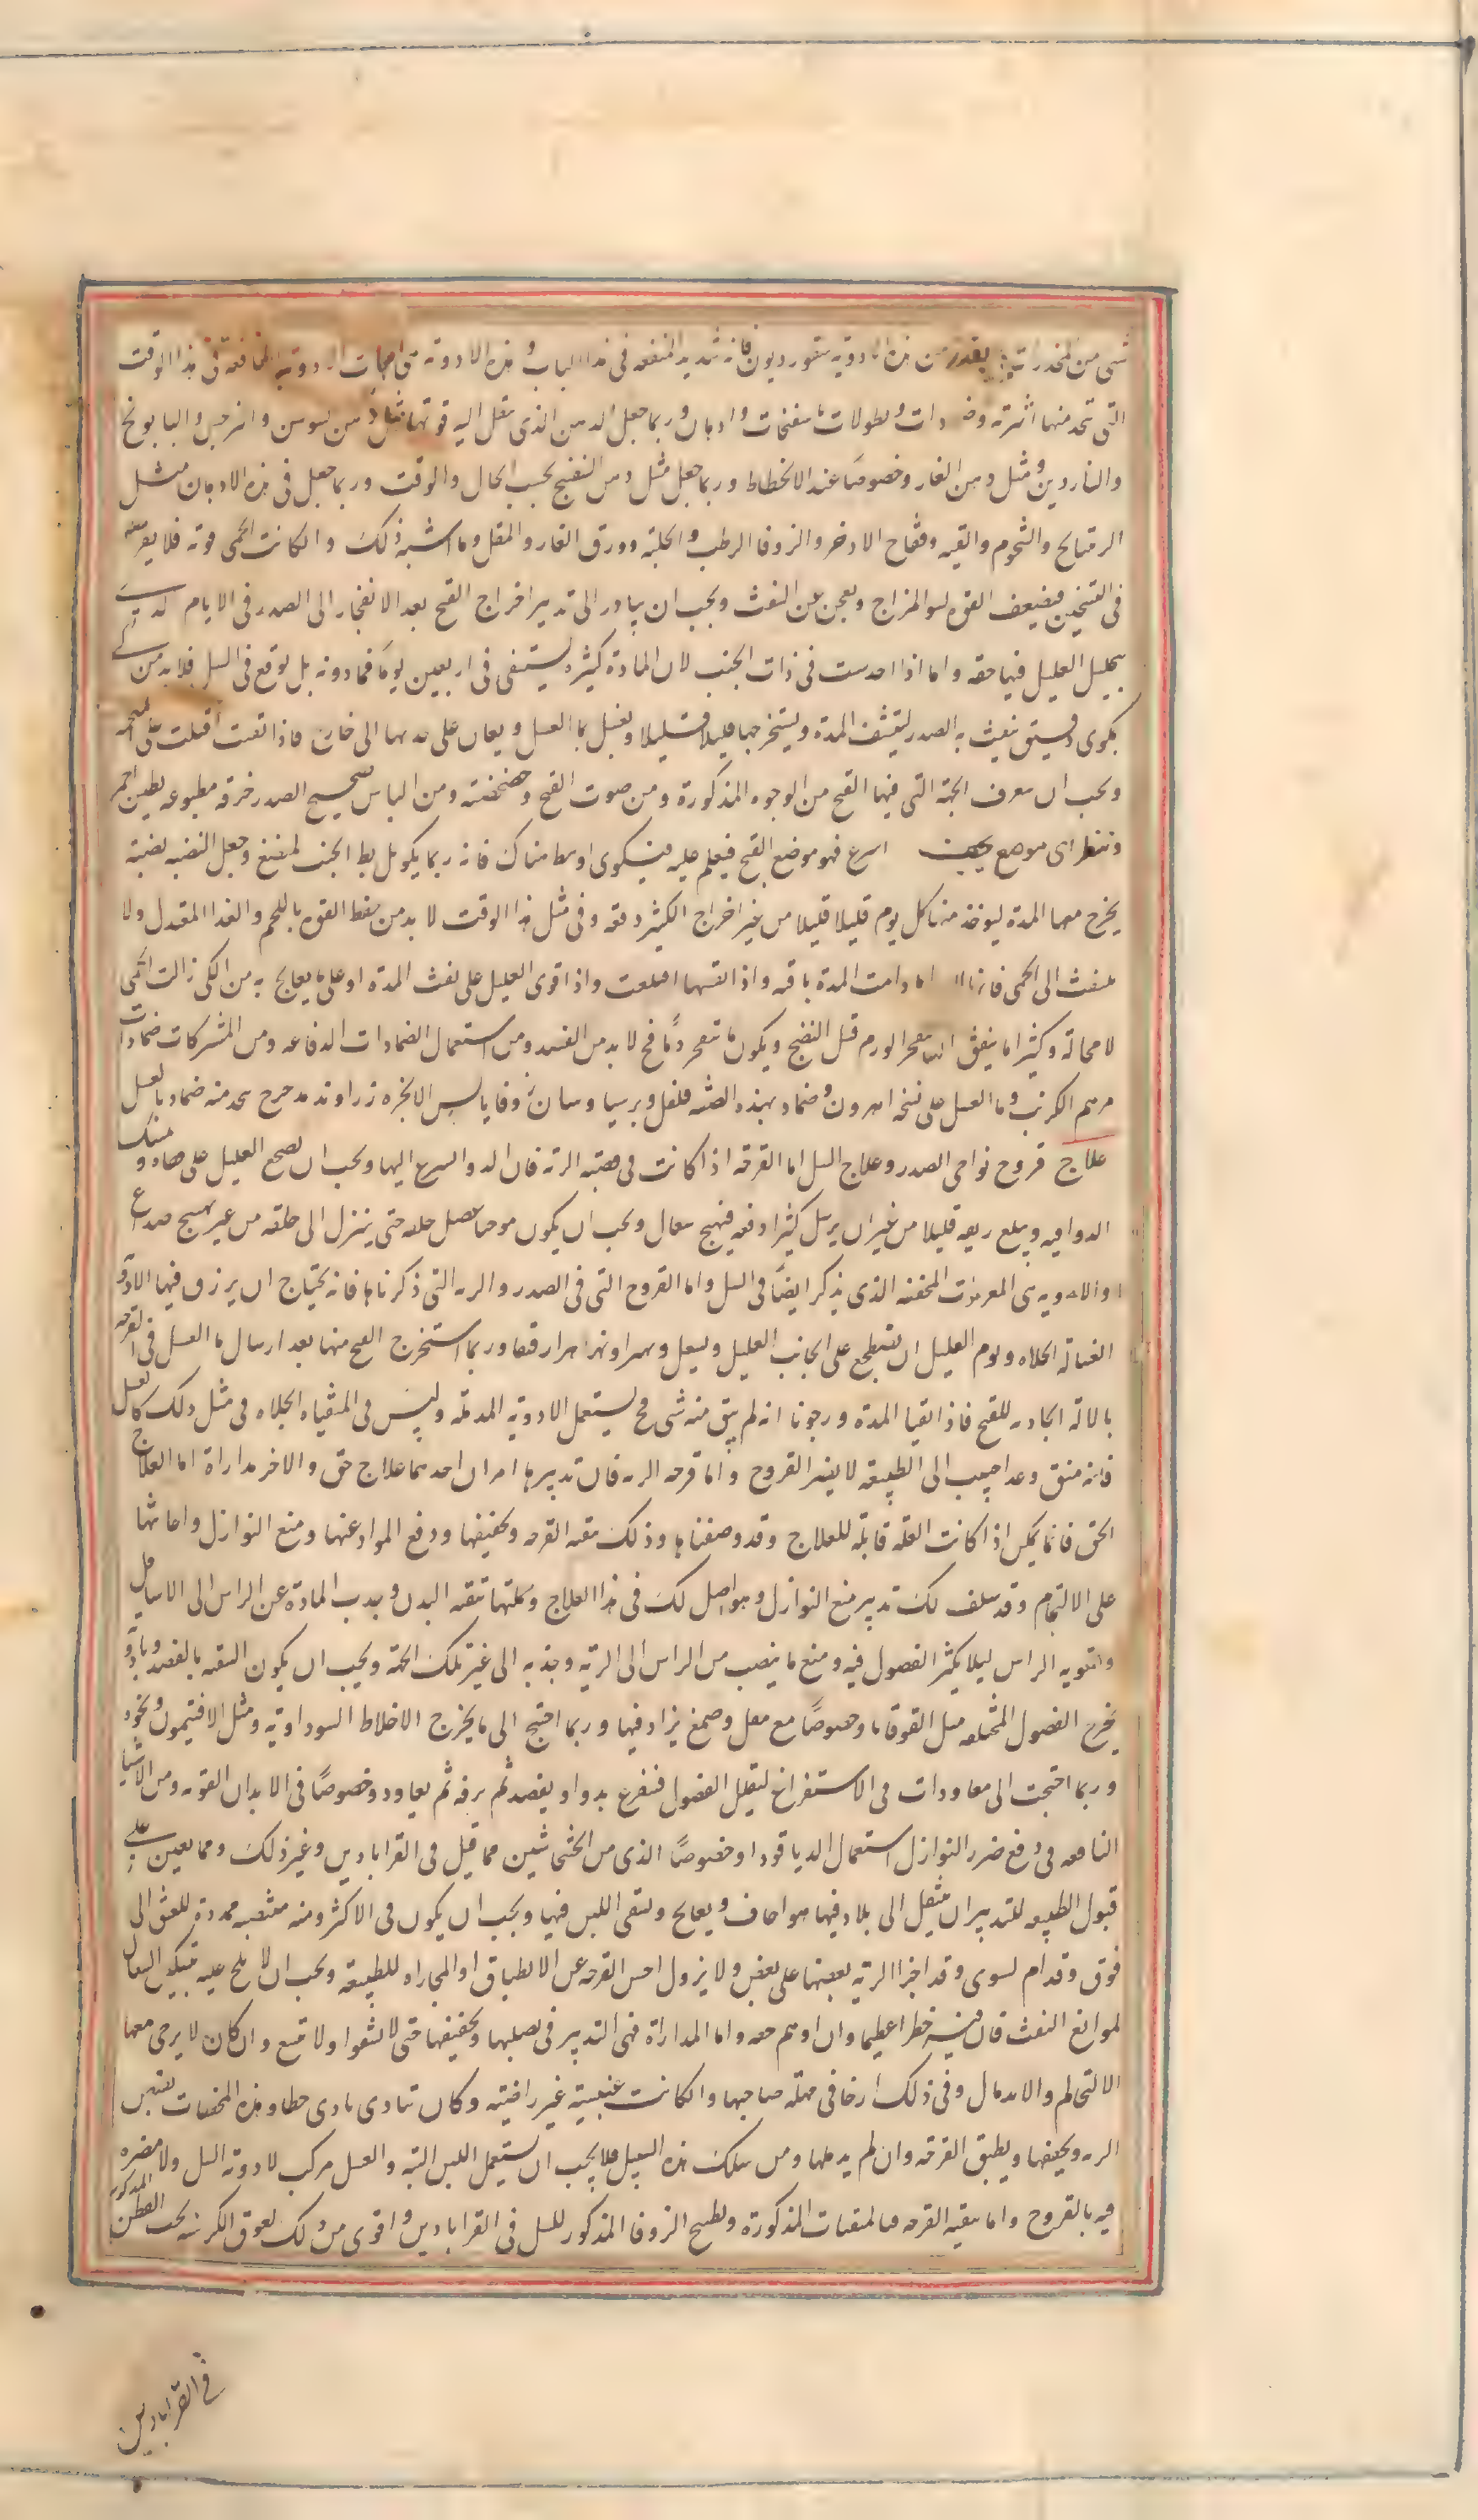 شی من المخدرات بقدر من هذه الادویه سقوردیون فانه شدید المنفعه فی هذا الباب و هذه الادویة الادویة النافعة فی هذا الوقت
التی تتخد منها اشربة وضمادات ونطولات مفتحات وادهان و ربما جعل الدهن الذی ینقل الیه قوتها مثل دهن السوسن والنرجس والبابونج
والناردین و مثل دهن الغار وخصوصًا عند الانحطاط وربما جعل مثل دهن البنفسج بحسب الحال والوقت وربما جعل فی هذه الادهان مثل
الریتیانج والشحوم والقنه وفقاح الاذخر والزوفا الرطب والحلبة وورق الغار والمقل وما اشبه ذلک وان کانت الحمی قویة فلا یفرط
فی التسخین فیضعف القوه لسو المزاج ویعجز عن النفث ویجب ان یبادر الی تدبیر اخراج القیح بعد الانفجار الی الصدر فی الایام
العلیل فیها حقه واما اذا احدست فی ذات الجنب لان المادة کثیرة یستنقی فی اربعین یومًا فما دونه بل یوقع فی السل فلا بد من کی
بمکوی دقیق یثقب به الصدر لینشف المدة ویستخرجها قلیلا قلیلا ویغسل بما العسل ویعان علی جذبها الی خارج فاذا نقیت اقبلت علی الملحم
ویجب ان یعرف الجهة التی فیها القیح من الوجوه المذکورة ومن صوت القیح وخضخضته ومن الناس من یضع علی الصدر خرقه مصبوغه بطین احمر
وینظر ای موضع یجف اسرع فهو موضع القیح فیعلم علیه فیکوی او یبط هناک فانه ربما لم یکو بل بط الجنب لمبضع وجعل النصبه نصبة
یخرج معها المدة لیوخذ منها کل یوم قلیلا قلیلا من غیر اخراج الکثیر دفعه وفی مثل هذا الوقت لا بد من حفظ القوه باللحم والغذا المعتدل ولا
یلتفت الی الحمی فانها ما دامت المدة باقیه واذا نقیتها اقلعت واذا قوی العلیل علی نفث المدة او علی ما یعالج به من الکی زالت الحمی
لا محالة وکثیرا ما یتفق ان ینفجر الورم قبل النضج ویکون ما ینفجر دمًا فح لا بد من الفصد ومن استعمال الضمادات الدفاعه ومن المشترکات ضمادات
مرهم الکرنب وما العسل علی نسخه اهرون وضماد بهذه الصفه فلفل وبرسیاوشان وقا یابس الابخره زراوند مدحرج یتخذ منه ضماد بالعسل
علاج قروح نواحی الصدر وعلاج السل اما القرحه اذا کانت فی قصبة الریه فان الدوا یسرع الیها ویجب ان یضجع العلیل علی قفاه ویمسک
الدوا فی فیه ویبلع ریقه قلیلا من غیر ان یرسل کثیرا دفعه فیهیج سعال ویجب ان یکون مرخیا عضل حلقه حتی ینزل الی حلقه من غیر تهییج سعال
والادویه هی المغریات المجففه الذی یذکر ایضًا فی السل واما القروح التی فی الصدر والریه التی ذکرناها فانه یحتاج ان یرزق فیها الادویه
الغسالة الجلاءه ویومر العلیل ان یضطجع علی الجانب العلیل ویسعل ویهتز او یهز هزا رفیقا وربما استخرج القیح منها بعد ارسال ما العسل فی القرحه
بالالة الجاذبه للقیح فاذا نقینا المدة ورجونا انه لم یبق منه شی فح یستعمل الادویه المدمله ولیس فی المنقیاه الجلاه فی مثل ذلک کالعسل
فانه منق وغذا حبیب الی الطبیعه لا یضر القروح واما قرحه الریه فان تدبیرها امران احدهما علاج حق والاخر مداراة اما العلاج
الحق فانما یمکن اذا کانت العلة قابلة للعلاج وقد وصفناها وذلک بتنقیه القرحه وتجفیفها ودفع المواد عنها ومنع النوازل واعانتها
علی الالتحام وقد سلف لک تدبیر منع النوازل وهو اصل لک فی هذا العلاج وجملتها تنقیه البدن وجذب المادة عن الراس الی الاسافل
وتقویه الراس لیلا یکثر الفضول فیه ومنع ما ینصب من الراس الی الریه وجذبه الی غیر تلک الجهة ویجب ان یکون التنقیه بالفصد وبادویة
یخرج الفضول المختلفه مثل القوقایا وخصوصًا مع مقل وصمغ یزاد فیها وربما احتیج الی ما یخرج الاخلاط السوداویه ومثل الافتیمون ونحوه
وربما احتجت الی معاودات فی الاستفراغ لیقلل الفضول فتفرغ بدوا ویفصد ثم یرفه ثم یعاود وخصوصًا فی الابدان القویه ومن الاشیا
النافعه فی دفع ضرر النوازل استعمال الدیاقودا وخصوصًا الذی من الخشخاشین مما قیل فی القراباذین وغیر ذلک ومما یعین علی
قبول الطبیعه للتدبیر ان ینتقل الی بلاد فیها هوا جاف ویعالج ویسقی اللبن فیها ویجب ان یکون فی الاکثر نصبته منتصبه ممددة للعنق الی
فوق وقدام لیستوی وقد اجزا الریه بعضها علی بعض ولا یزول اجزا القرحه عن الانطباق او المجاراه للطبیعه ویجب ان لا یلح علیه بتسکین السعال
لموانع النفث فان فیه خطرا عظیما وان اوهم خفه واما المداراة فهی التدبیر فی تصلیبها وتجفیفها حتی لا یفشوا ولا یتسع وان کان لا یرجی معها
الالتحام والاندمال وفی ذلک ارخا فی مهلة صاحبها وان کانت عیشته غیر راضیه وکان یتاذی بادی خطا وهذه المجففات یقبض
الریه ویجففها ویطبق القرحه وان لم یدملها ومن سلک هذه السبیل فلا یجب ان یستعمل اللبن البتة والعسل مرکب لادویة السل ولا مضره
فیه بالقروح واما تنقیه القرحه فبالمنقیات المذکورة وطبیخ الزوفا المذکور للسل فی القراباذین واقوی من ذلک لعوق الکرسنه بحب القطن المذکور
فی القراباذین